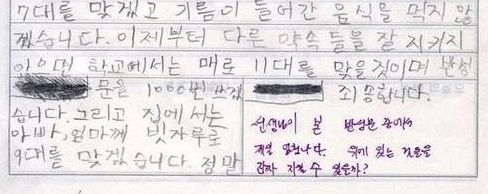 7대를 맞겠고 기름이 들어간 음식을 먹지 않
겠습니다. 이제부터 다른 약속들을 잘 지키지
않으면 학교에서는 매로 11대를 맞을것이며 반성
문을 1000번 쓰겠
습니다. 그리고 집에서는
아빠, 엄마께 빗자루로
9대를 맞겠습니다. 정말
죄송합니다.
선생님이 본 반성문 중에서
제일 입니다. 위에 있는 것들을
감자 지킬 수 있을까?